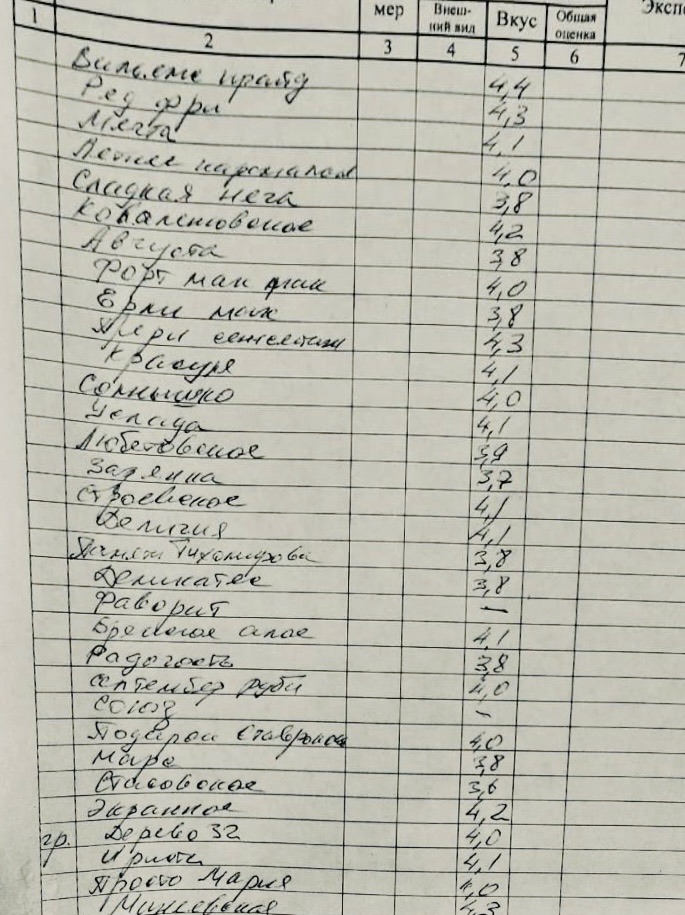 мер Внеш-ний вид Вкус Общая оценка Эксп
1 2 3 4 5 6 7
Вильямс прайд 4,4
Ред фри 4,3
Мечта 4,1
Летнее 4,0
Сладкая нега 3,8
Коваленковское 4,2
Августа 3,8
Форт 4,0
Ерли мак 3,8
4,3
4,1
Солнышко 4,0
Услада 4,1
Любетовское 3,9
Зарянка 3,7
Строевское 4,1
Делигия 4,1
Памяти Тихомирова 3,8
Деликатес 3,8
Фаворит —
алое 4,1
Радогость 3,8
Септембер руби 4,0
Союз –
4,0
Марс 3,8
3,6
Экранное 4,2
гр. Дерево 32 4,0
4,1
Просто Мария 4,0
4,3